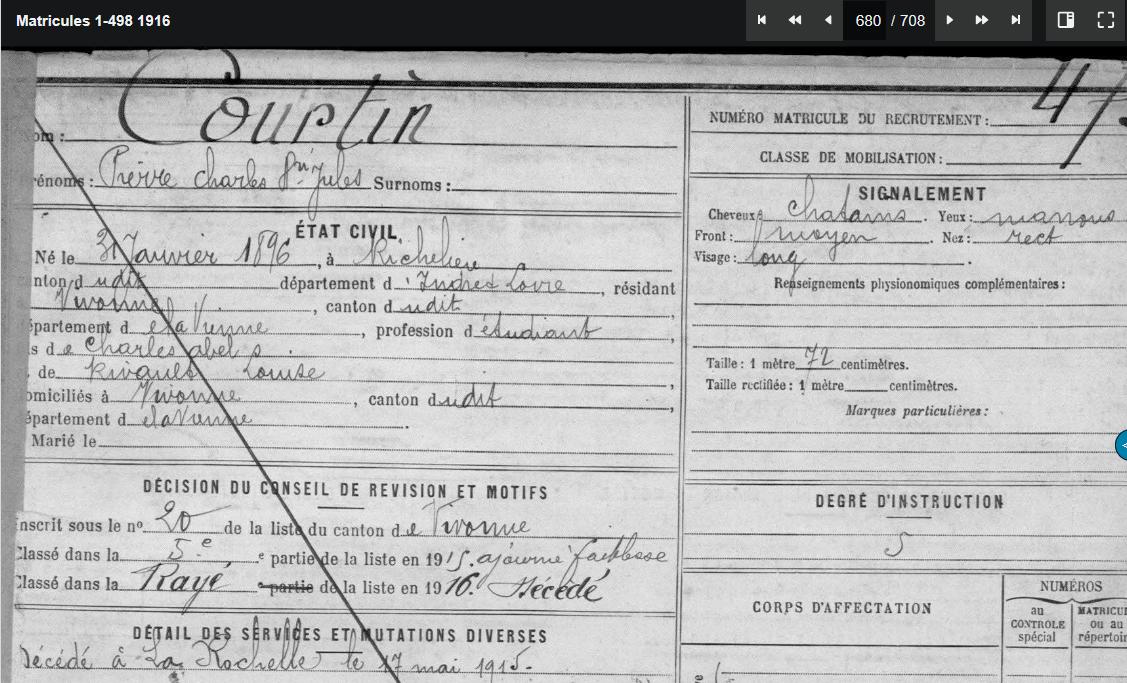 Matricules 1-498 1916
680 / 708
Courtin
om :
NUMÉRO MATRICULE DU RECRUTEMENT :
47
CLASSE DE MOBILISATION :
rénoms : Pierre Charles Jules Surnoms :
SIGNALEMENT
Cheveux Chatains. Yeux : marrons
Front : moyen. Nez : rect
Visage : long.
Renseignements physionomiques complémentaires :
Taille : 1 mètre 72 centimètres.
Taille rectifiée : 1 mètre centimètres.
Marques particulières :
ÉTAT CIVIL.
Né le 31 Janvier 1896, à Richelieu
anton d udit département d' Indre & Loire, résidant
Vivonne, canton d udit
épartement d e la Vienne, profession d' étudiant,
s de Charles abel
. de Rivault Louise,
omiciliés à Vivonne, canton d udit,
épartement d e la Vienne.
Marié le
DÉCISION DU CONSEIL DE REVISION ET MOTIFS
nscrit sous le nº 20 de la liste du canton d e Vivonne
Classé dans la 5e e partie de la liste en 1915. ajourné faiblesse
Classé dans la Rayé e partie de la liste en 1916. Décédé
DEGRÉ D'INSTRUCTION
5
DÉTAIL DES SERVICES ET MUTATIONS DIVERSES
Décédé à La Rochelle le 17 mai 1915.
CORPS D'AFFECTATION
NUMÉROS
au CONTROLE spécial
MATRICU ou au répertoir